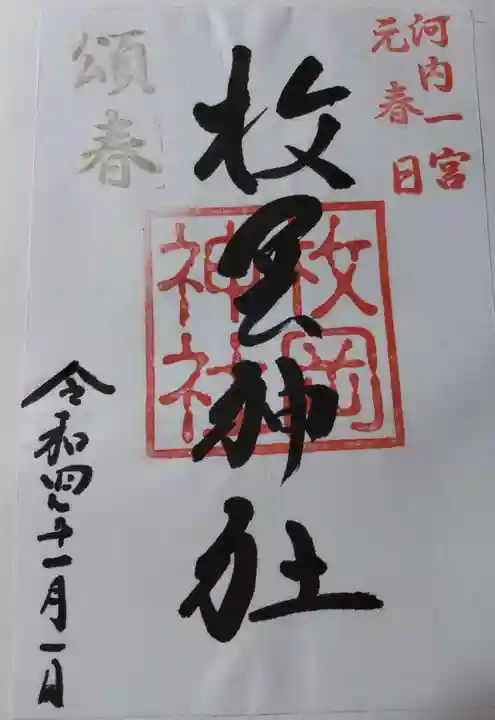 河内一宮
元春日
枚岡神社
枚岡神社
頌春
令和四年一月一日